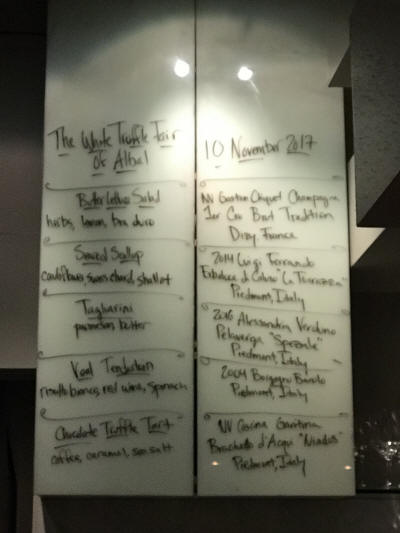 The White Truffle Fair
Of Alba!
Butter Lettuce Salad
herbs, lemon, bra duro
Seared Scallop
cauliflower, swiss chard, shallot
Tagliarini
parmesan butter
Veal Tenderloin
risotto bianco, red wine, spinach
Chocolate Truffle Tart
coffee, caramel, sea salt
10 November 2017
NV Gaston Chiquet Champagne
1er Cru Brut Tradition
Dizy, France
2014 Luigi Ferrando
Erbaluce di Caluso "La Torrazza"
Piedmont, Italy
2016 Alessandria
Pelaverga "Speziale"
Piedmont, Italy
2004 Borgogno Barolo
Piedmont, Italy
NV Cascina Garitina
Brachetto d'Acqui "Niades"
Piedmont, Italy